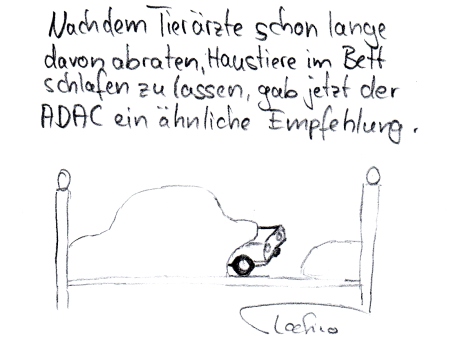 Nachdem Tierärzte schon lange
davon abraten, Haustiere im Bett
schlafen zu lassen, gab jetzt der
ADAC ein ähnliche Empfehlung.